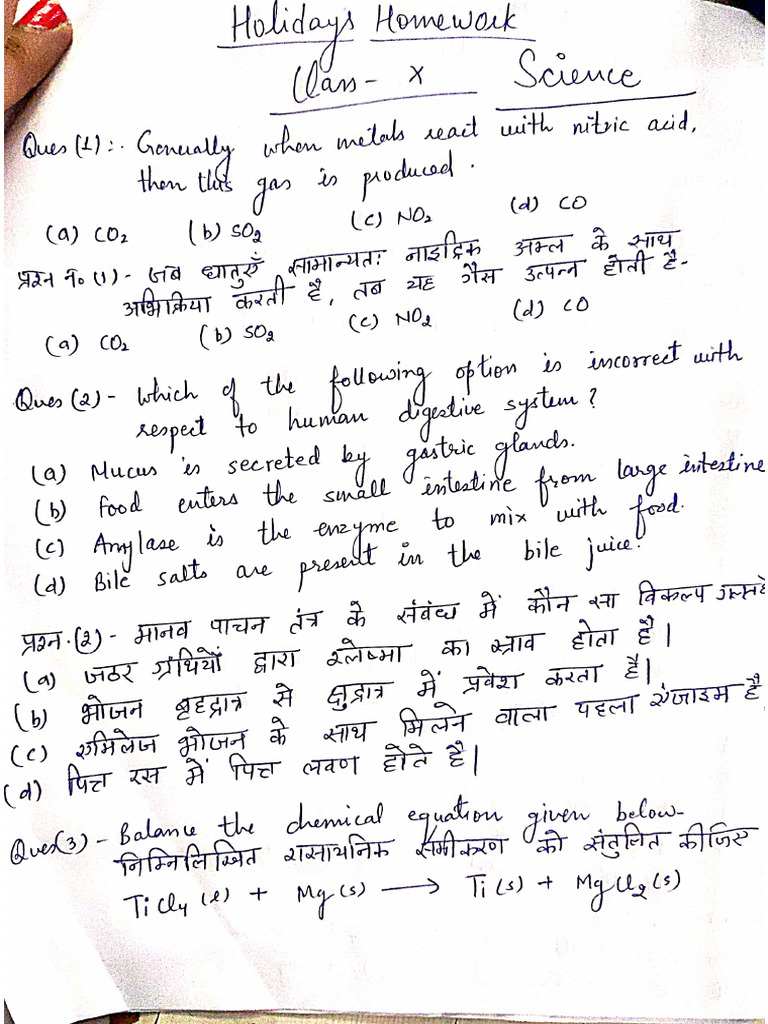 Holidays Homework
Class - X Science
Ques (1):- Generally when metals react with nitric acid,
then this gas is produced.
(a) CO2 (b) SO2 (c) NO2 (d) CO
प्रश्न न० (1) - जब धातुएँ सामान्यतः नाइट्रिक अम्ल के साथ
अभिक्रिया करती है, तब यह गैस उत्पन्न होती है-
(a) CO2 (b) SO2 (c) NO2 (d) CO
Ques (2) - Which of the following option is incorrect with
respect to human digestive system?
(a) Mucus is secreted by gastric glands.
(b) Food enters the small intestine from large intestine
(c) Amylase is the enzyme to mix with food.
(d) Bile salts are present in the bile juice.
प्रश्न.(2) - मानव पाचन तंत्र के संबंध में कौन सा विकल्प
(a) जठर ग्रंथियों द्वारा श्लेष्मा का स्राव होता है।
(b) भोजन बृहद्रात्र से क्षुद्रात्र में प्रवेश करता है।
(c) एमिलेज भोजन के साथ मिलने वाला पहला एंजाइम है
(d) पित्त रस में पित्त लवण होते है।
Ques(3) - Balance the chemical equation given below-
निम्निलिखित रासायनिक समीकरण को संतुलित कीजिए
TiCl4(l) + Mg(s) ⟶ Ti(s) + MgCl2(s)